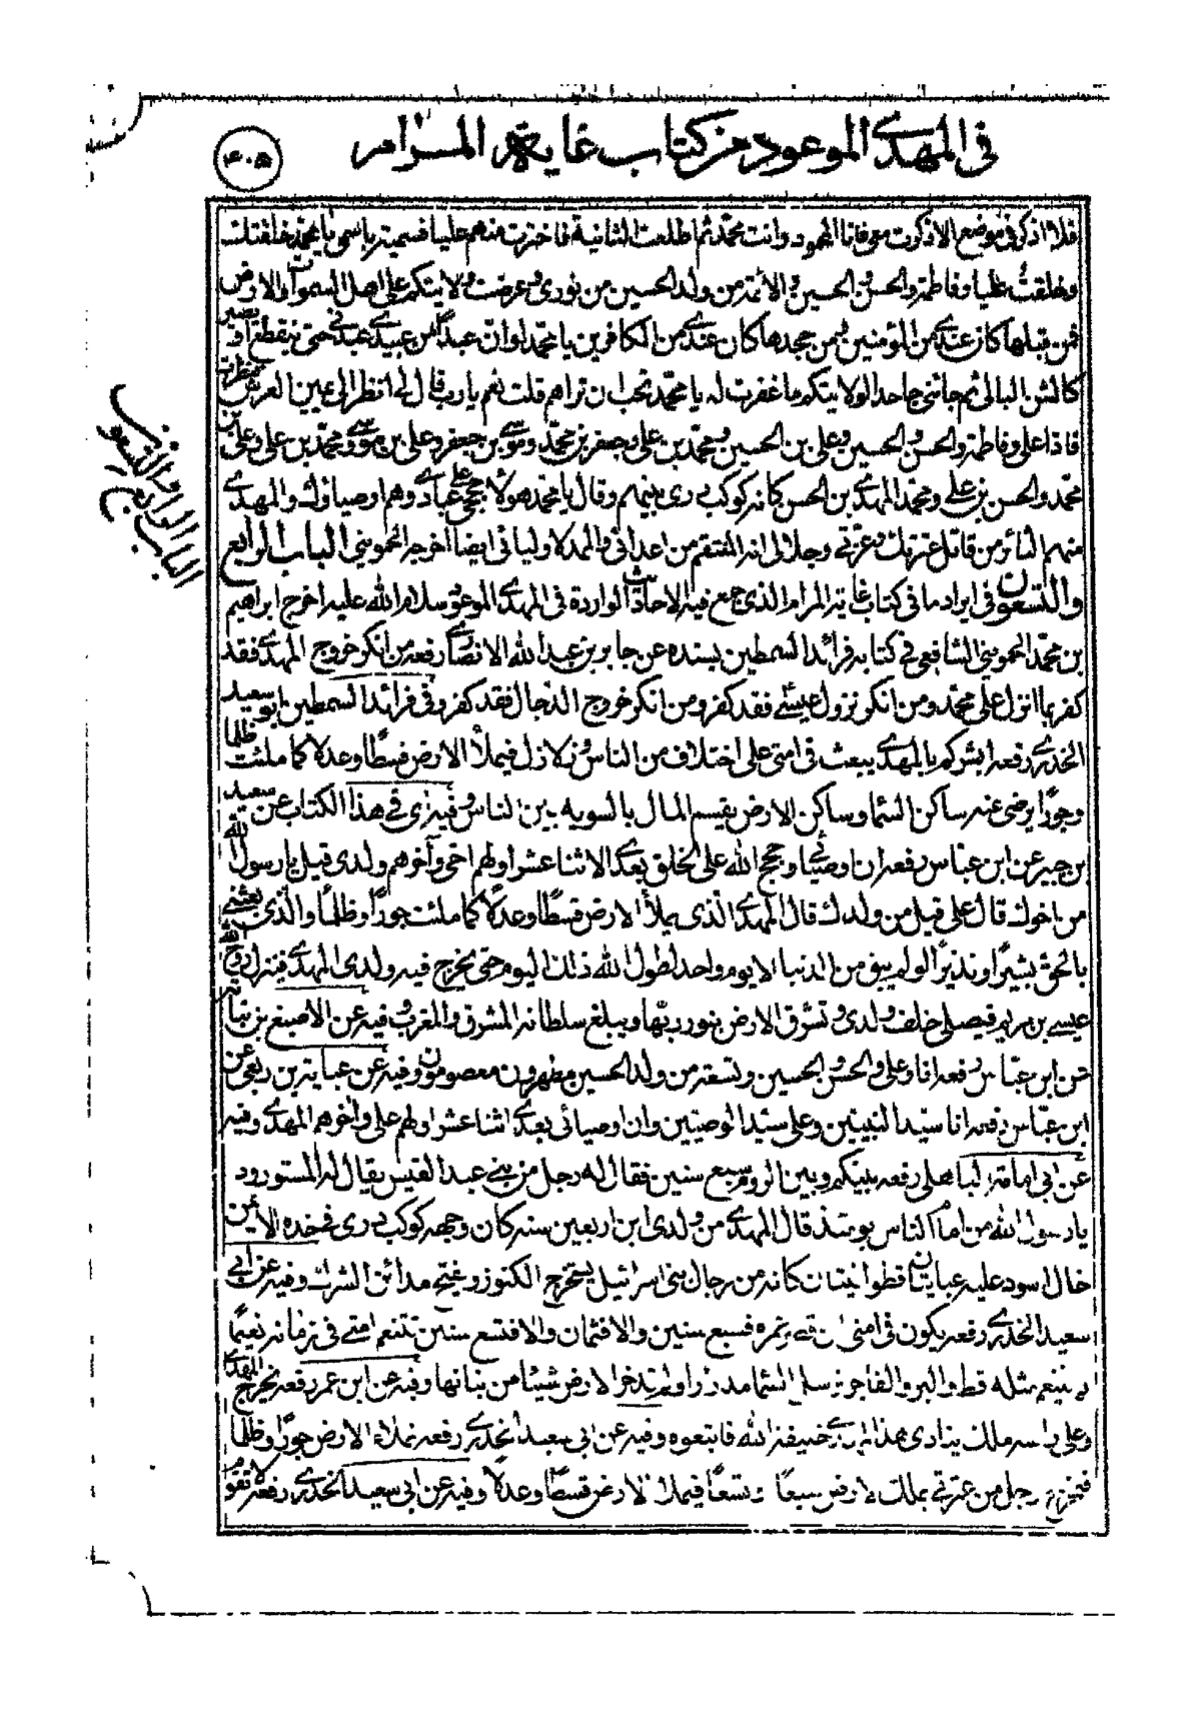 في المهدي الموعود من كتاب غاية المرام
٤٠٥
فلا اذكر في موضع الا ذكرت معي فانا المحمود وانت محمد ثم اطلعت الثانية فاخترت منهم عليا فسميته باسمي يا محمد خلقتك
وخلقت عليا وفاطمة والحسن والحسين والائمة من ولد الحسين من نوري وعرضت ولايتكم على اهل السموات والارض
فمن قبلها كان عندي من المؤمنين ومن جحدها كان عندي من الكافرين يا محمد لو ان عبدا من عبيدي عبدني حتى ينقطع او يصير
كالشن البالي ثم جائني جاحدا لولايتكم ما غفرت له يا محمد تحب ان تراهم قلت نعم يا رب قال لي انظر الى يمين العرش فنظرت
فاذا علي وفاطمة والحسن والحسين وعلي بن الحسين ومحمد بن علي وجعفر بن محمد وموسى بن جعفر وعلي بن موسى ومحمد بن علي وعلي بن
محمد والحسن بن علي ومحمد المهدي بن الحسن كانه كوكب دري بينهم وقال يا محمد هولاء حججي على عبادي وهم اوصياؤك والمهدي
منهم الثائر من قاتل عترتك وعزتي وجلالي انه المنتقم من اعدائي والممد لاوليائي ايضا اخرجه الحمويني الباب الرابع
والتسعون في ايراد ما في كتاب غاية المرام الذي جمع فيه الاحاديث الواردة في المهدي الموعود سلام الله عليه اخرج ابراهيم
بن محمد الحمويني الشافعي في كتابه فرائد السمطين بسنده عن جابر بن عبد الله الانصاري رفعه من انكر خروج المهدي فقد
كفر بما انزل على محمد ومن انكر نزول عيسى فقد كفر ومن انكر خروج الدجال فقد كفر وفي فرائد السمطين ابو سعيد
الخدري رفعه ابشركم بالمهدي يبعث في امتي على اختلاف من الناس وزلازل فيملأ الارض قسطا وعدلا كما ملئت ظلما
وجورا يرضى عنه ساكن السماء وساكن الارض يقسم المال بالسوية بين الناس وفيه اي في هذا الكتاب عن سعيد
بن جبير عن ابن عباس رفعه ان اوصيائي وحجج الله على الخلق بعدي الاثنا عشر اولهم اخي وآخرهم ولدي قيل يا رسول الله
من اخوك قال علي قيل من ولدك قال المهدي الذي يملأ الارض قسطا وعدلا كما ملئت جورا وظلما والذي بعثني
بالحق بشيرا ونذيرا لو لم يبق من الدنيا الا يوم واحد لطول الله ذلك اليوم حتى يخرج فيه ولدي المهدي فينزل روح الله
عيسى بن مريم فيصلي خلف ولدي وتشرق الارض بنور ربها ويبلغ سلطانه المشرق والمغرب وفيه عن الاصبغ بن نباتة
عن ابن عباس رفعه انا وعلي والحسن والحسين وتسعة من ولد الحسين مطهرون معصومون وفيه عن عباية بن ربعي عن
ابن عباس رفعه انا سيد النبيين وعلي سيد الوصيين وان اوصيائي بعدي اثنا عشر اولهم علي وآخرهم المهدي وفيه
عن ابي امامة الباهلي رفعه بينكم وبين الروم سبع سنين فقال له رجل من بني عبد القيس يقال له المستورد
يا رسول الله من امام الناس يومئذ قال المهدي من ولدي ابن اربعين سنة كان وجهه كوكب دري في خده الايمن
خال اسود عليه عبايتان قطوانيتان كانه من رجال بني اسرائيل يستخرج الكنوز ويفتح مدائن الشرك وفيه عن ابي
سعيد الخدري رفعه يكون في امتي ان قصر عمره فسبع سنين والا فثمان والا فتسع سنين تتنعم امتي في زمانه نعيما
لم يتنعم مثله قط البر والفاجر يرسل السماء مدرارا ولم تدخر الارض شيئا من نباتها وفيه عن ابن عمر رفعه يخرج المهدي
وعلى راسه ملك ينادي هذا المهدي خليفة الله فاتبعوه وفيه عن ابي سعيد الخدري رفعه تملاء الارض جورا وظلما
فيخرج رجل من عترتي يملك الارض سبعا وتسعا فيملأ الارض قسطا وعدلا وفيه عن ابي سعيد الخدري رفعه لا تقوم
الباب الرابع والتسعون